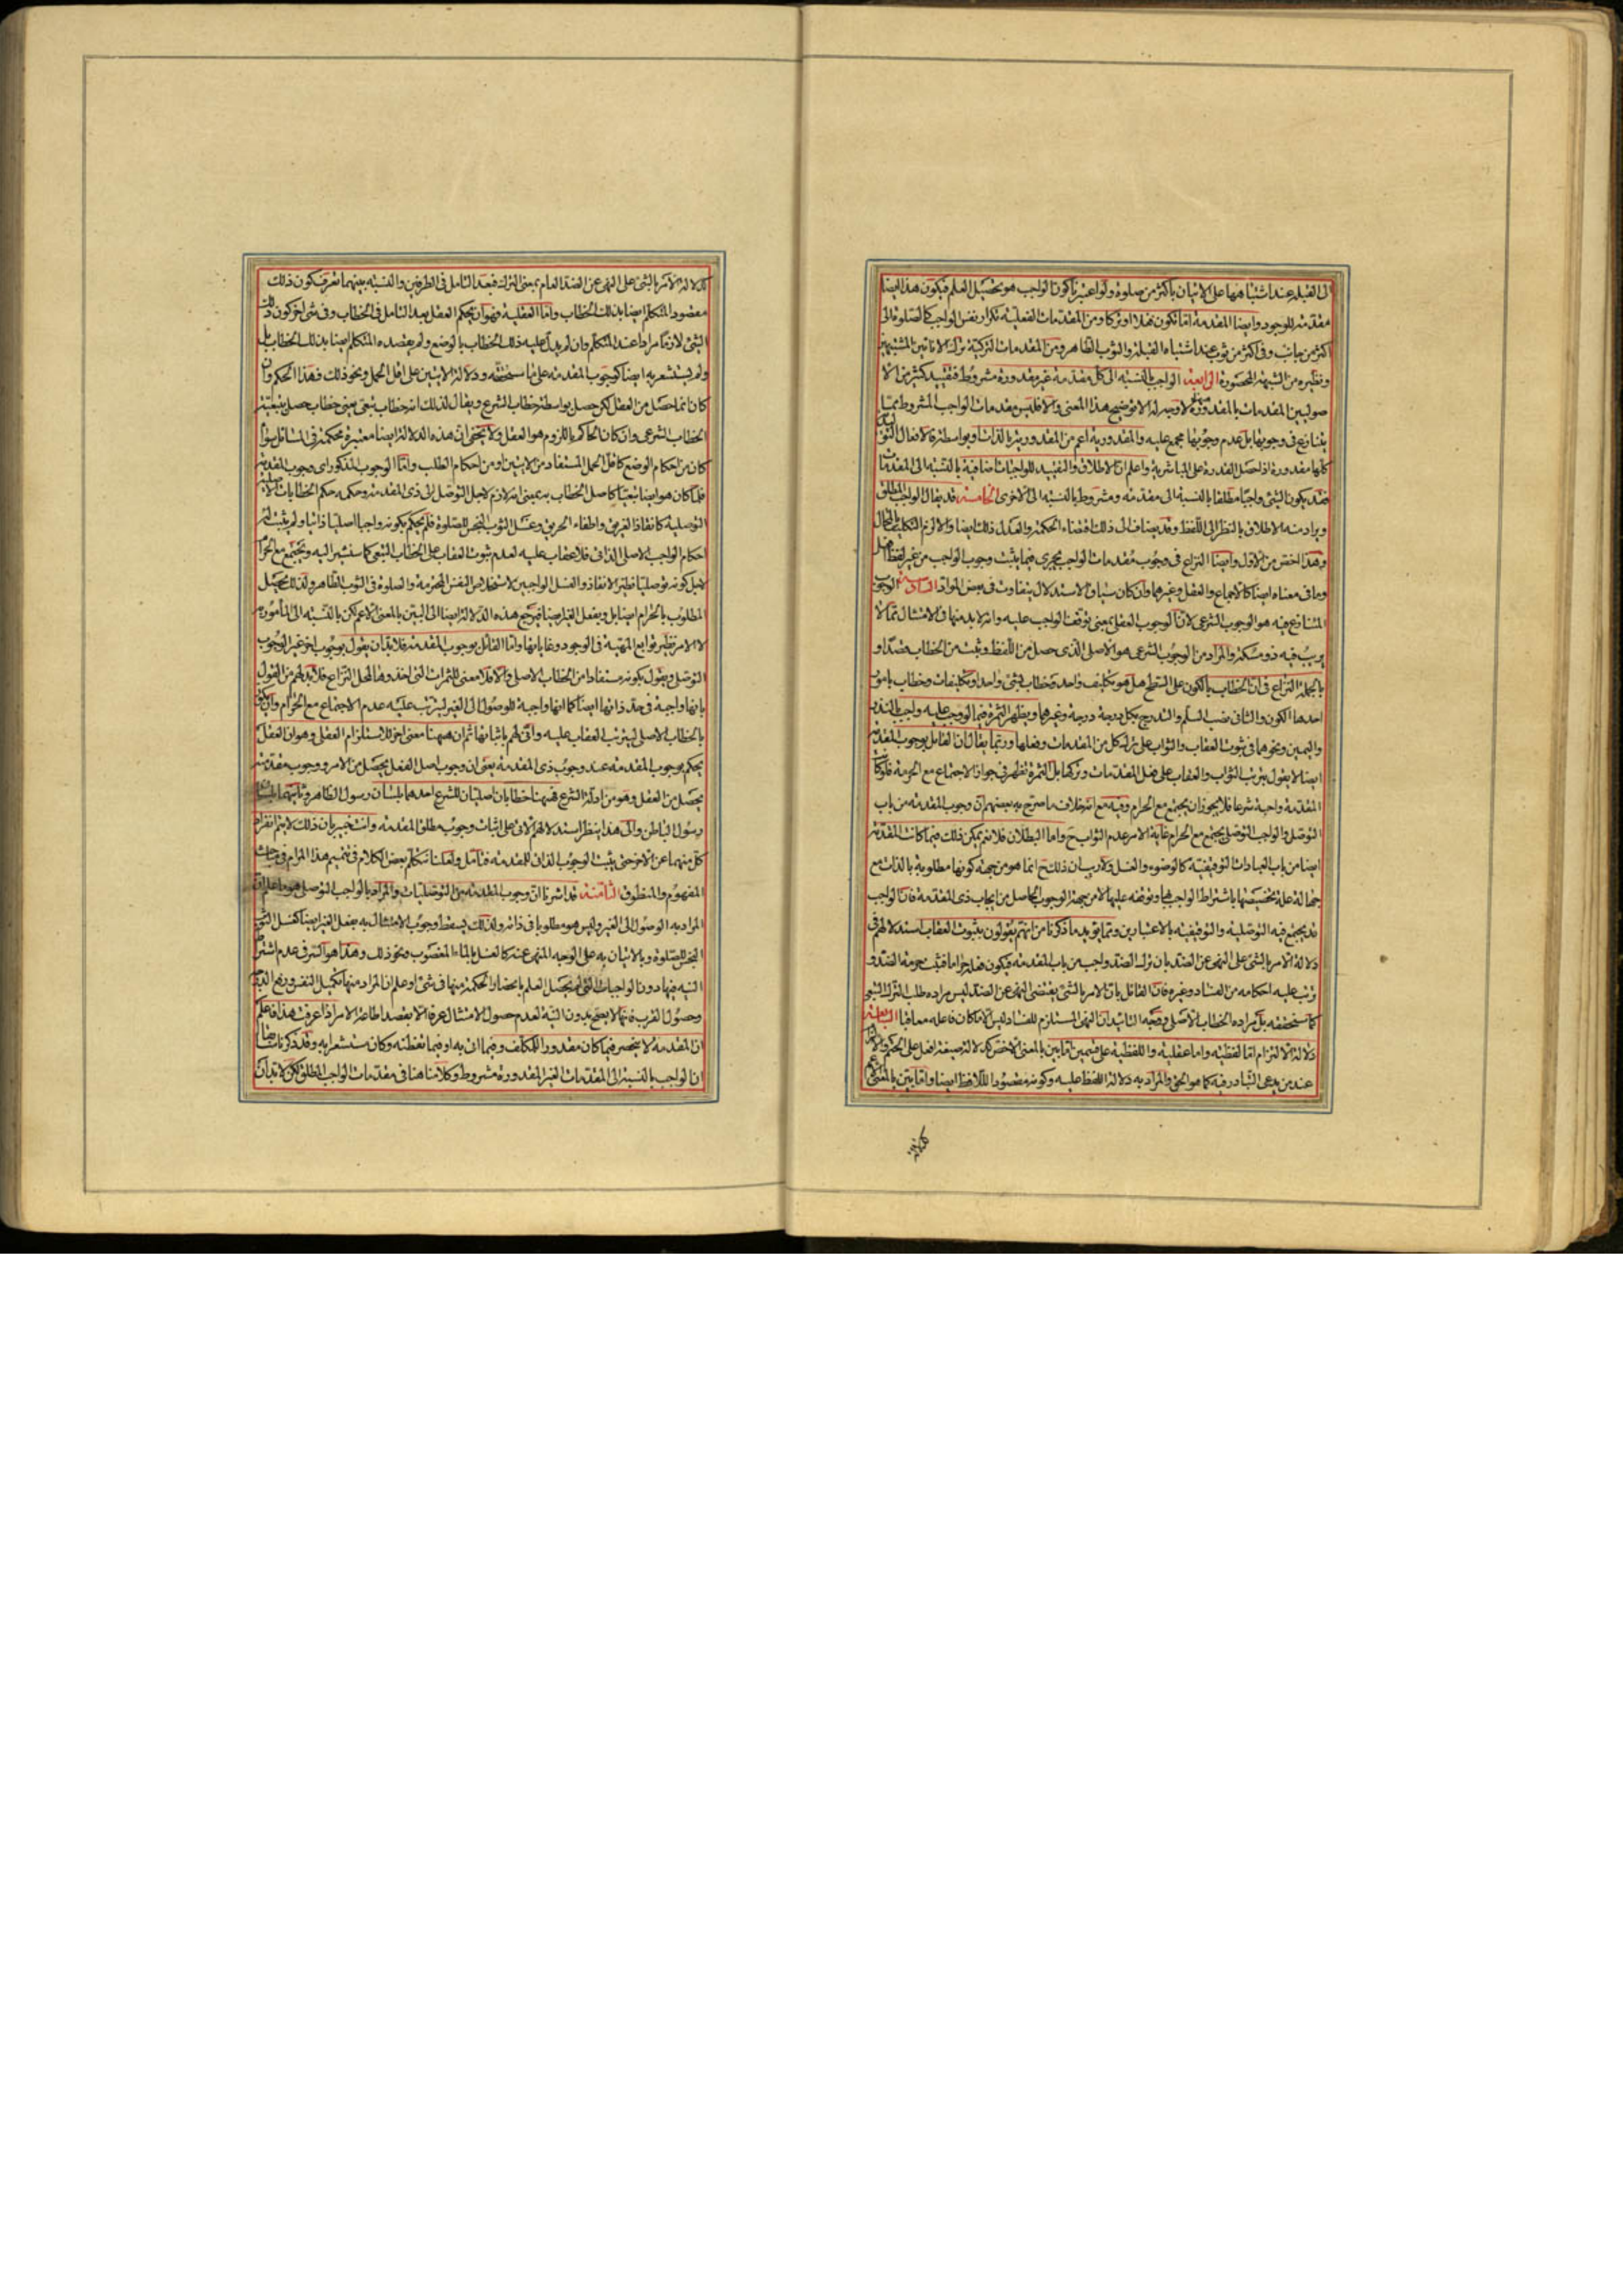 الى القبلة عند اشتباهها على الاتيان باكثر من صلوة ولو اعتبرنا كون الواجب هو تحصيل العلم فيكون هذا ايضا
مقدمة للوجود وايضا المقدمة اما تكون فعلا او تركا ومن المقدمات الفعلية تكرار نفس الواجب كالصلوة الى
اكثر من جانب وفي اكثر من ثوب عند اشتباه القبلة والثوب الطاهر ومن المقدمات التركية ترك الاناءين المشتبهين
ونظيره من الشبهة المحصورة الرابعة الواجب بالنسبة الى كل مقدمة غير مقدورة مشروط فتقييد كثير من الا
صوليين المقدمات بالمقدورة لا وجه له الا توضيح هذا المعنى والا فليس مقدمات الواجب المشروط مما
يتنازع في وجوبها بل عدم وجوبها مجمع عليه والمقدورية اعم من المقدورية بالذات او بواسطة فالافعال التوليدية
كلها مقدورة اذا حصل القدرة على المباشرية واعلم ان الاطلاق والتقييد للواجبات اضافية بالنسبة الى المقدمات
فقد يكون الشئ واجبا مطلقا بالنسبة الى مقدمة ومشروطا بالنسبة الى الاخرى الخامسة قد يقال الواجب المطلق
ويراد منه الاطلاق بالنظر الى اللفظ وقد يضاف الى ذلك اقتضاء الحكمة والعدل ذلك ايضا والا لزم التكليف بالمحال
وهذا اخص من الاول وايضا النزاع في وجوب مقدمات الواجب يجري فيما يثبت وجوب الواجب من غير لفظ افعل
وما في معناه ايضا كالاجماع والعقل وغيرهما وان كان سياق الاستدلال يتفاوت في بعض الموارد السادسة الوجوب
المتنازع فيه هو الوجوب الشرعي لان الوجوب العقلي بمعنى توقف الواجب عليه وانه لابد منها في الامتثال مما لا
يريب فيه ذو مسكة والمراد من الوجوب الشرعي هو الاصلي الذي حصل من اللفظ وثبت من الخطاب قصدا و
بالجملة النزاع في ان الخطاب بالكون على السطح هل هو تكليف واحد وخطاب بشئ واحد او تكليفات وخطاب بامور
احدها الكون والثاني نصب السلم والتدرج بكل درجة درجة وغيرهما ويظهر الثمرة فيما لو وجب عليه واجب بالنذر
واليمين ونحوهما في ثبوت العقاب والثواب على ترك كل من المقدمات وفعلها وربما يقال ان القائل بوجوب المقدمة
ايضا لا يقول بترتب الثواب والعقاب على فعل المقدمات وتركها بل الثمرة تظهر في جواز الاجتماع مع الحرمة فلو كانت
المقدمة واجبة شرعا فلا يجوز ان يجتمع مع الحرام وفيه مع انه خلاف ما صرح به بعضهم ان وجوب المقدمة من باب
التوصل والواجب التوصلي يجتمع مع الحرام غاية الامر عدم الثواب ح واما البطلان فلا نعم يمكن ذلك فيما كانت المقدمة
ايضا من باب العبادات التوقيفية كالوضوء والغسل ولا ريب ان ذلك ح انما هو من جهة كونها مطلوبة بالذات مع
جهالة علة تخصيصها باشتراط الواجب بها وتوقفه عليها لا من جهة الوجوب الحاصل من ايجاب ذي المقدمة فان الواجب
قد يجتمع فيه التوصلية والتوقيفية بالاعتبارين ومما يؤيد ما ذكرنا من انهم يقولون بثبوت العقاب استدلالهم في
دلالة الامر بالشئ على النهي عن الضد بان ترك الضد واجب من باب المقدمة فيكون فعله حراما فثبت حرمة الضد و
ترتب عليه احكامه من الفساد وغيره فان القائل بان الامر بالشئ يقتضي النهي عن الضد ليس مراده طلب الترك التبعي
كما سنحققه بل مراده الخطاب الاصلي ووجه التاييد ان النهي المستلزم للفساد ليس الا ما كان فاعله معاقبا السابعة
دلالة الالتزام اما لفظية واما عقلية واللفظية على قسمين اما بين بالمعنى الاخص كدلالة صيغة افعل على الحتم والالزام
عند من يدعي التبادر فيه كما هو الحق والمراد به دلالة اللفظ عليه وكونه مقصودا للافظ ايضا واما بين بالمعنى الاعم
كدلالة
كدلالة الامر بالشئ على النهي عن الضد العام بمعنى الترك فبعد التامل في الطرفين والنسبة بينهما نعرف كون ذلك
مقصود المتكلم ايضا بذلك الخطاب واما العقلية فهو ان يحكم العقل بعد التامل في الخطاب وفي شئ اخر كون ذلك
الشئ لازما مرادا عند المتكلم وان لم يدل عليه ذلك الخطاب بالوضع ولم يقصده المتكلم ايضا بذلك الخطاب بل
ولم يستشعر به ايضا كوجوب المقدمة على ما سنحققه ودلالة الايتين على اقل الحمل ونحو ذلك فهذا الحكم وان
كان انما حصل من العقل لكن حصل بواسطة خطاب الشرع ويقال لذلك انه خطاب تبعي يعني خطاب حصل بتبعية
الخطاب الشرعي وان كان الحاكم باللزوم هو العقل ولا يخفى ان هذه الدلالة ايضا معتبرة محكمة في المسائل سواء
كان من احكام الوضع كاقل الحمل المستفاد من الايتين او من احكام الطلب واما الوجوب المذكور اي وجوب المقدمة
فلما كان هو ايضا تبعيا كاصل الخطاب به بمعنى انه لازم لاجل التوصل الى ذي المقدمة وحكمه حكم الخطابات الاصلية
التوصلية كانقاذ الغريق واطفاء الحريق وغسل الثوب النجس للصلوة فلم يحكم بكونه واجبا اصليا ذاتيا ولم يثبت له
احكام الواجب الاصلي الذاتي فلا عقاب عليه لعدم ثبوت العقاب على الخطاب التبعي كما سنشير اليه ويجتمع مع الحرام
لاجل كونه توصليا نظير الانقاذ والغسل الواجبين لاستخلاص النفس المحترمة والصلوة في الثوب الطاهر ولذلك يحصل
المطلوب بالحرام ايضا بل وبفعل الغير ايضا فيرجع هذه الدلالة ايضا الى البين بالمعنى الاعم لكن بالنسبة الى المامور به
لا الامر نظير توابع المهية في الوجود وغاياتها واما القائل بوجوب المقدمة فلا بد ان يقول بوجوب اخر غير الوجوب
التوصلي ويقول بكونه مستفادا من الخطاب الاصلي والا فلا معنى للثمرات التي اخذوها لمحل النزاع فلا بد لهم من القول
بانها واجبة في حد ذاتها ايضا كما انها واجبة للوصول الى الغير ليترتب عليه عدم الاجتماع مع الحرام وان يكون
بالخطاب الاصلي ليترتب العقاب عليه واني لهم باثباتها ثم ان ههنا معنى اخر للاستلزام العقلي وهو ان العقل
يحكم بوجوب المقدمة عند وجوب ذي المقدمة يعني ان وجوب اصل الفعل يحصل من الامر ووجوب مقدمته
يحصل من العقل وهو من ادلة الشرع فههنا خطابان اصليان للشرع احدهما بلسان رسول الظاهر وثانيهما بلسان
رسول الباطن والى هذا ينظر استدلالهم الاتي على اثبات وجوب مطلق المقدمة وانت خبير بان ذلك لا يتم انفراد
كل منهما عن الاخر حتى يثبت الوجوب الذاتي للمقدمة فتامل ولعلنا نتكلم بعض الكلام في تتميم هذا المرام في مباحث
المفهوم والمنطوق الثامنة قد اشرنا ان وجوب المقدمة من التوصليات والمراد بالواجب التوصلي هو ما علم ان
المراد به الوصول الى الغير وليس هو مطلوبا في ذاته ولذلك يسقط وجوب الامتثال به بفعل الغير ايضا كغسل الثوب
النجس للصلوة وبالاتيان به على الوجه المنهي عنه كالغسل بالماء المغصوب ونحو ذلك وهذا هو السر في عدم اشتراط
النية فيها دون الواجبات التي لم يحصل العلم بانحصار الحكمة منها في شئ او علم ان المراد منها تكميل النفس ورفع الدرجة
وحصول القرب فانها لا يصح بدون النية لعدم حصول الامتثال عرفا الا بقصد اطاعة الامر اذا عرفت هذا فاعلم
ان المقدمة لا ينحصر فيما كان مقدورا للمكلف وفيما اتى به او فيما تفطنه وكان مستشعرا به وقد ذكرنا سابقا
ان الواجب بالنسبة الى المقدمات الغير المقدورة مشروط وكلامنا هنا في مقدمات الواجب المطلق لكن لا بد ان